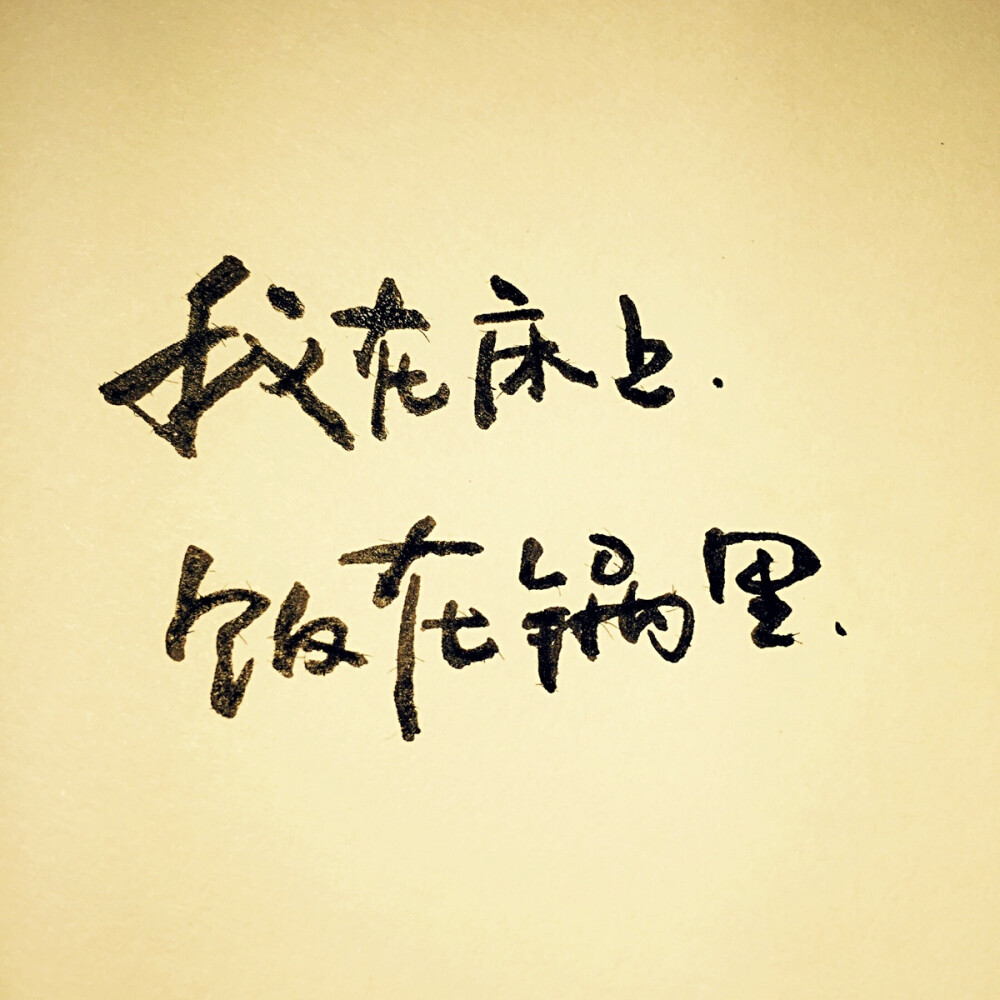 我在床上.
饭在锅里.